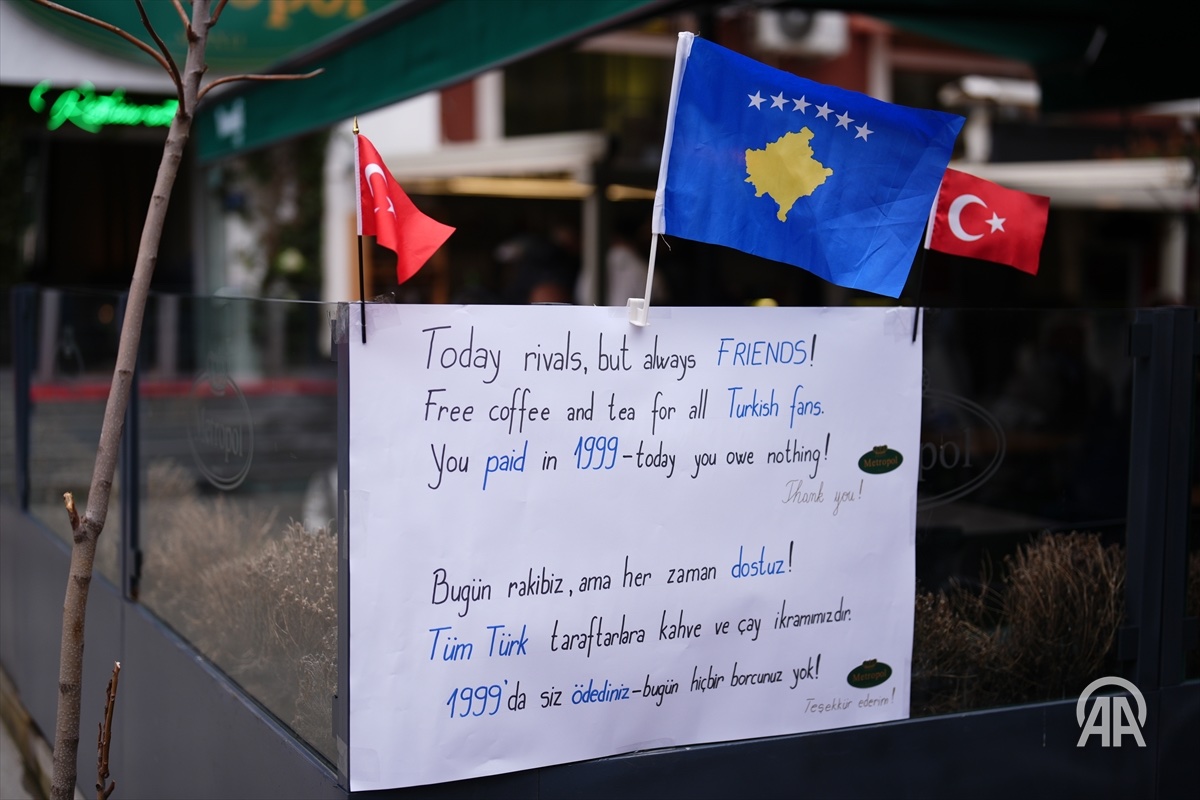 Restaurant
Today rivals, but always FRIENDS!
Free coffee and tea for all Turkish fans.
You paid in 1999-today you owe nothing!
Metropol
Thank you!
Bugün rakibiz, ama her zaman dostuz!
Tüm Türk taraftarlara kahve ve çay ikramımızdır.
1999'da siz ödediniz-bugün hiçbir borcunuz yok!
Metropol
Teşekkür ederim!
AA